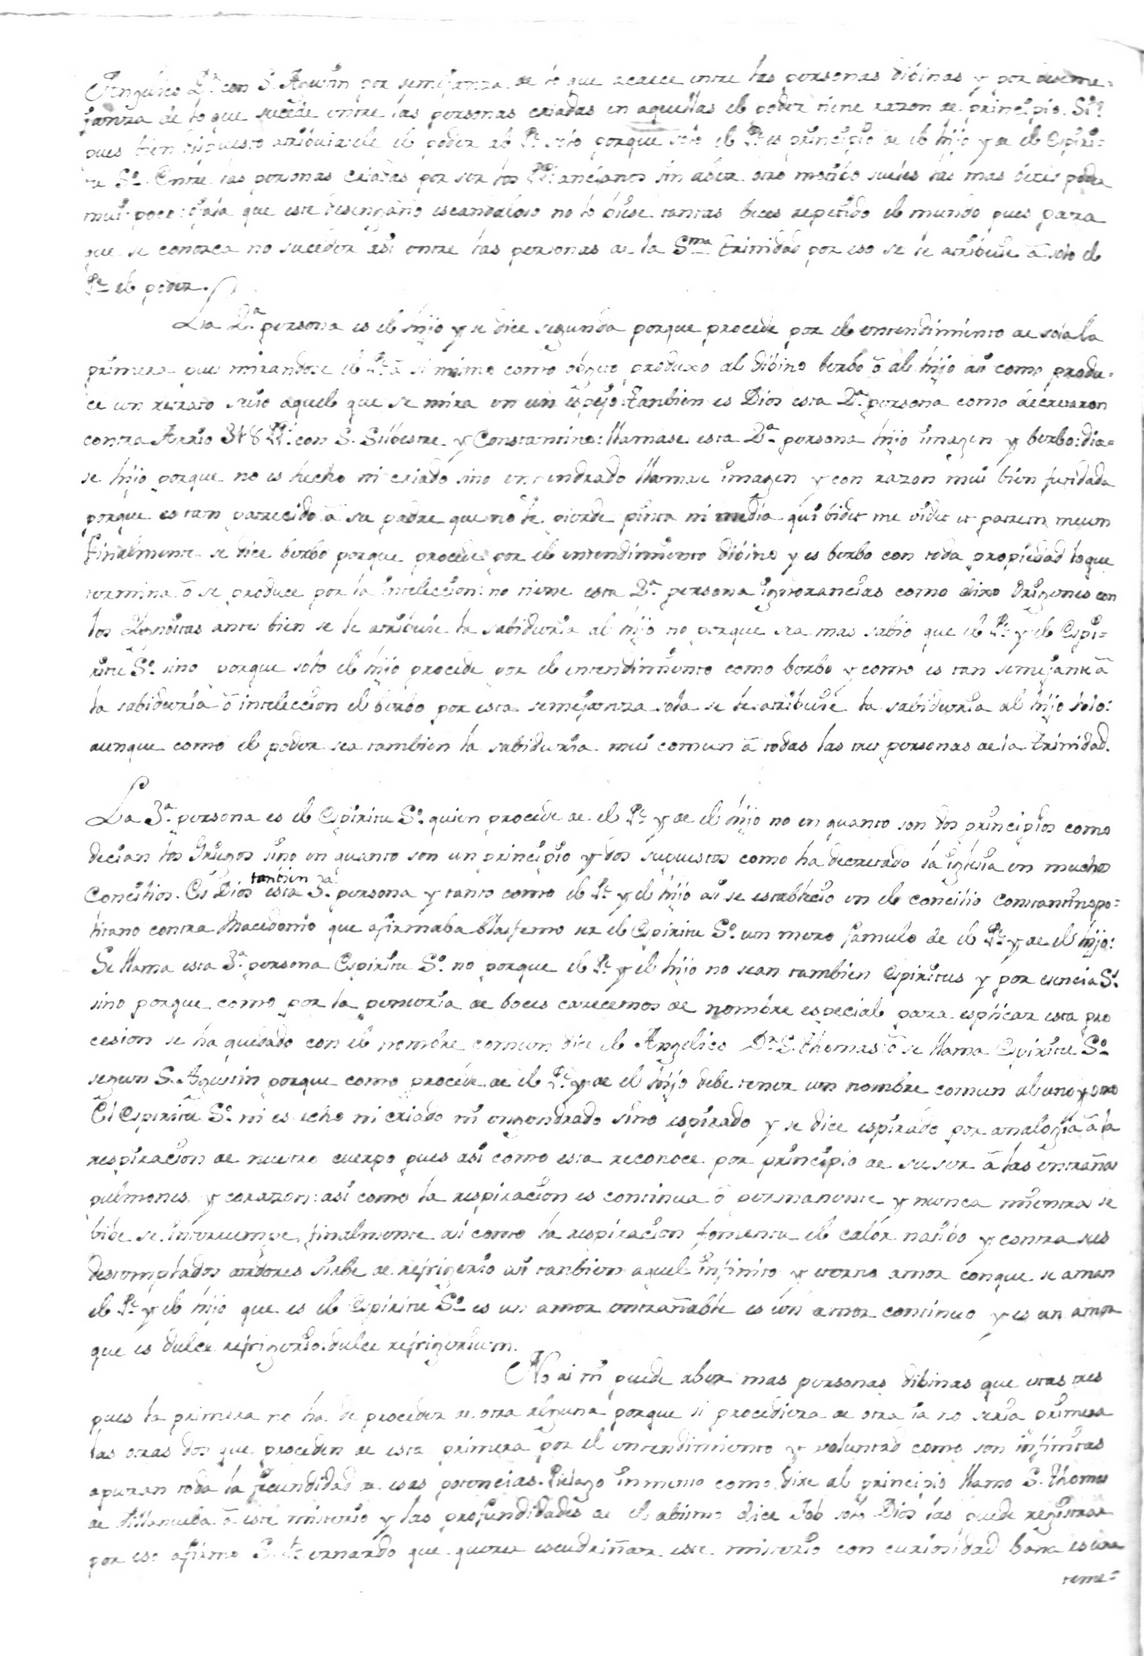 Angelico Dr. con S. Agustin por semejanza de lo que acaece entre las personas dibinas y por deseme-
janza de lo que sucede entre las personas criadas en aquellas el poder tiene razon de principio. Si
pues bien dispuesto atribuirsele el poder al Pe. solo porque solo el Pe. es principio de el hijo y de el Espiri-
tu So. Entre las personas criadas por ser los Ps. ancianos sin aber otro motibo sueles las mas beces poder
mui poco: ojala que este desengaño escandaloso no lo biese tantas beces repetido el mundo pues para
que se conozca no suceder asi entre las personas de la Sma. trinidad por eso se le atribuie â solo el
Pe. el poder.
La 2a. persona es el hijo y se dice segunda porque procede por el entendimiento de sola la
primera que mirandose el Pe. â si mismo como objeto produxo al dibino berbo ô al hijo asi como produ-
ce un retrato suio aquel que se mira en un espejo. tanbien es Dios esta 2a. persona como decretaron
contra Arrio 318 Ps. con S. Silbestre y Constantino: llamase esta 2a. persona hijo imagen y berbo: dia-
se hijo porque no es hecho ni criado sino engendrado llamase imagen y con razon mui bien fundada
porque es tan parecido â su padre que no le pierde pinta ni media qui bidet me videt et patrem meum
finalmente se dice berbo porque procede por el entendimiento dibino y es berbo con toda propiedad lo que
termina ô se produce por la inteleccion: no tiene esta 2a. persona ignorancias como dixo Origenes con
los Agnoitas antes bien se le atribuie la sabiduria al hijo no porque sea mas sabio que el Pe. y el Espi-
ritu So. sino porque solo el hijo procede por el entendimiento como berbo y como es tan semejante â
la sabiduria ô inteleccion el berbo por esta semejanza sola se le atribuie la sabiduria al hijo solo:
aunque como el poder sea tambien la sabiduria mui comun â todas las tres personas de la trinidad.
La 3a. persona es el Espiritu So. quien procede de el Pe. y de el hijo no en quanto son dos principios como
decian los Griegos sino en quanto son un principio y dos supuestos como ha decretado la iglesia en muchos
Concilios. Es Dios tanbien esta 3a. persona y tanto como el Pe. y el hijo asi se establecio en el concilio Constantinopo-
litano contra Macedonio que afirmaba blasfemo ser el Espiritu So. un mero famulo de el Pe. y de el hijo:
Se llama esta 3a. persona Espiritu So. no porque el Pe. y el hijo no sean tambien espiritus y por esencia Ss.
sino porque como por la penuria de boces carecemos de nombre especial para esplicar esta pro
cesion se ha quedado con el nombre comun dice el Angelico Dr. S. Thomas: ô se llama Espiritu So.
segun S. Agustin porque como procede de el Pe. y de el hijo debe tener un nombre comun al uno y otro
El Espiritu So. ni es echo ni criado ni engendrado sino espirado y se dice espirado por analogia â la
respiracion de nuestro cuerpo pues asi como esta reconoce por principio de su ser â las entrañas
pulmones y corazon: asi como la respiracion es continua ô permanente y nunca mientras se
bibe se interrumpe, finalmente asi como la respiracion fomenta el calor natibo y contra sus
destemplados ardores sirbe de refrigerio asi tanbien aquel infinito y eterno amor conque se aman
el Pe. y el hijo que es el Espiritu So. es un amor entrañable es un amor continuo y es un amor
que es dulce refrigerio: dulce refrigerium.
No ai ni puede aber mas personas dibinas que estas tres
pues la primera no ha de proceder de otra alguna porque si procediera de otra ia no seria primera
las otras dos que proceden de esta primera por el entendimiento y voluntad como son infinitas
apuran toda la fecundidad de esas potencias. Pielago inmenso como dixe al principio llamo S. Thomas
de Villanueba â este misterio y las profundidades de el abismo dice Job solo Dios las puede registrar
por eso afirmo S. Bernardo que querer escudriñar este misterio con curiosidad bana es una
teme-